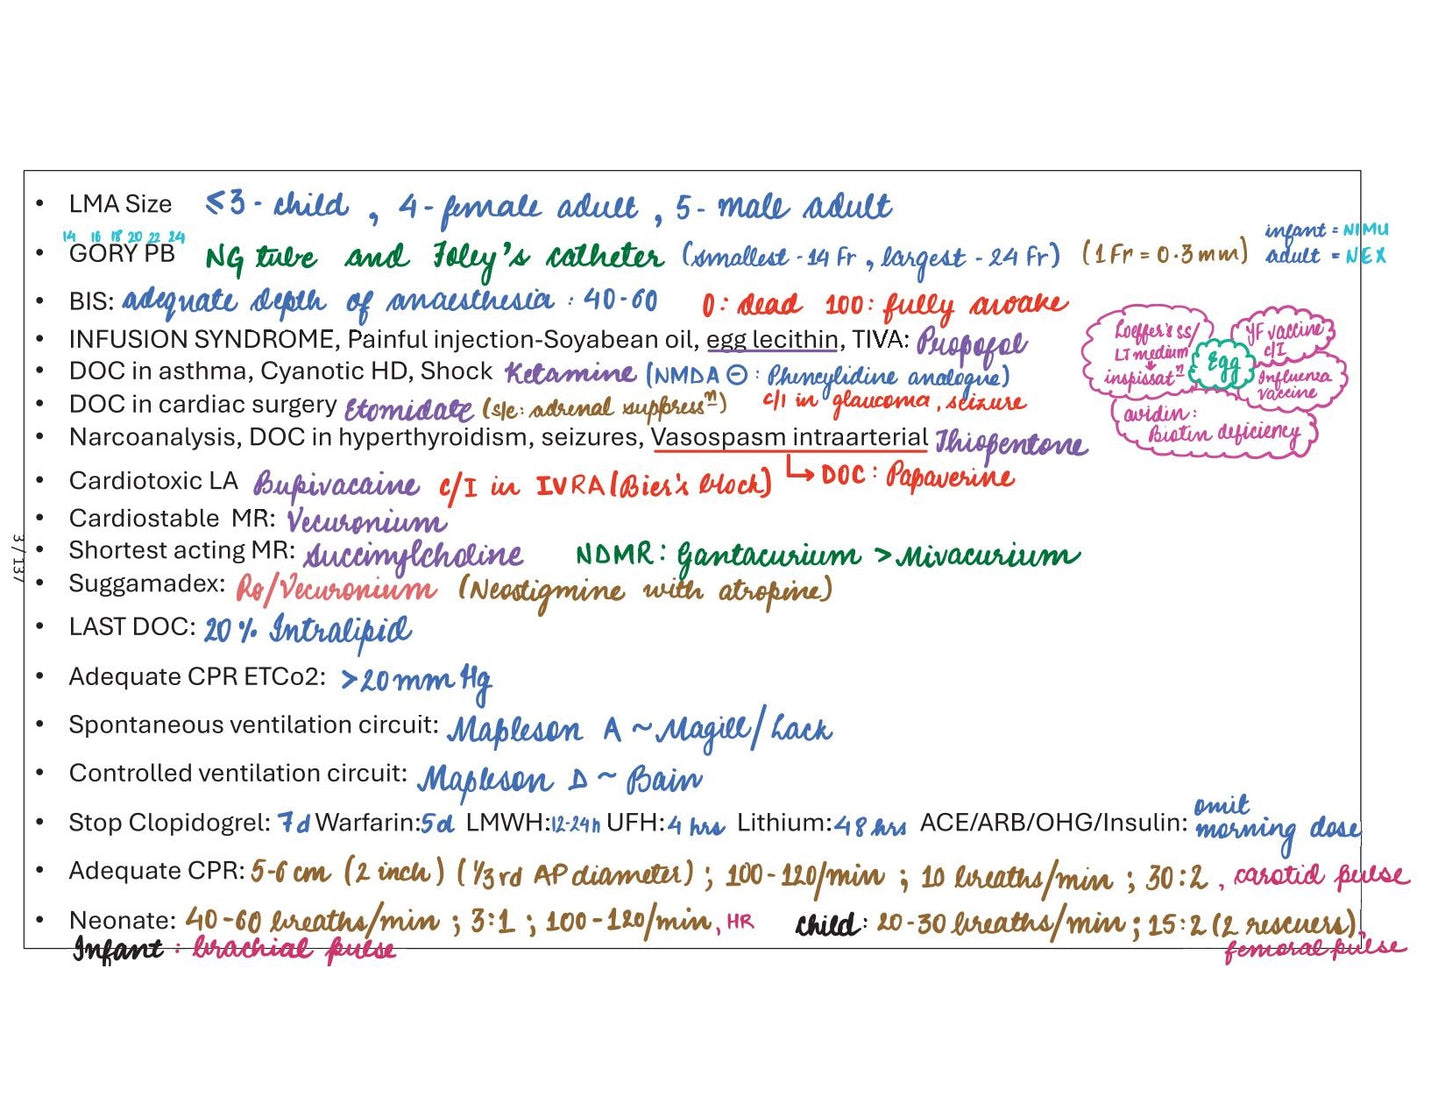 • LMA Size ≤3 - child , 4 - female adult , 5 - male adult
14 16 18 20 22 24
infant = NIMU
• GORY PB NG tube and Foley's catheter (smallest - 14 Fr , largest - 24 Fr) (1 Fr = 0.3 mm) adult = NEX
• BIS: adequate depth of anaesthesia : 40-60 0: dead 100: fully awake
• INFUSION SYNDROME, Painful injection-Soyabean oil, egg lecithin, TIVA: Propofol
• DOC in asthma, Cyanotic HD, Shock Ketamine (NMDA ⊖ : Phencylidine analogue)
• DOC in cardiac surgery Etomidate (s/e: adrenal suppressⁿ) c/I in glaucoma, seizure
• Narcoanalysis, DOC in hyperthyroidism, seizures, Vasospasm intraarterial Thiopentone
Loeffer's ss/
LJ medium
↓
inspissatⁿ
Egg
YF vaccine
c/I
Influenza
vaccine
avidin:
Biotin deficiency
• Cardiotoxic LA Bupivacaine c/I in IVRA (Bier's block) ↳ DOC : Papaverine
• Cardiostable MR: Vecuronium
• Shortest acting MR: Succinylcholine NDMR: Gantacurium > Mivacurium
• Suggamadex: Ro/Vecuronium (Neostigmine with atropine)
• LAST DOC: 20% Intralipid
• Adequate CPR ETCo2: >20 mm Hg
• Spontaneous ventilation circuit: Mapleson A ~ Magill/Lack
• Controlled ventilation circuit: Mapleson D ~ Bain
• Stop Clopidogrel: 7d Warfarin: 5d LMWH: 12-24h UFH: 4 hrs Lithium: 48 hrs ACE/ARB/OHG/Insulin: omit
morning dose
• Adequate CPR: 5-6 cm (2 inch) (1/3rd AP diameter) ; 100-120/min ; 10 breaths/min ; 30:2 , carotid pulse
• Neonate: 40-60 breaths/min ; 3:1 ; 100-120/min, HR child: 20-30 breaths/min ; 15:2 (2 rescuers),
Infant : brachial pulse femoral pulse
3 / 137